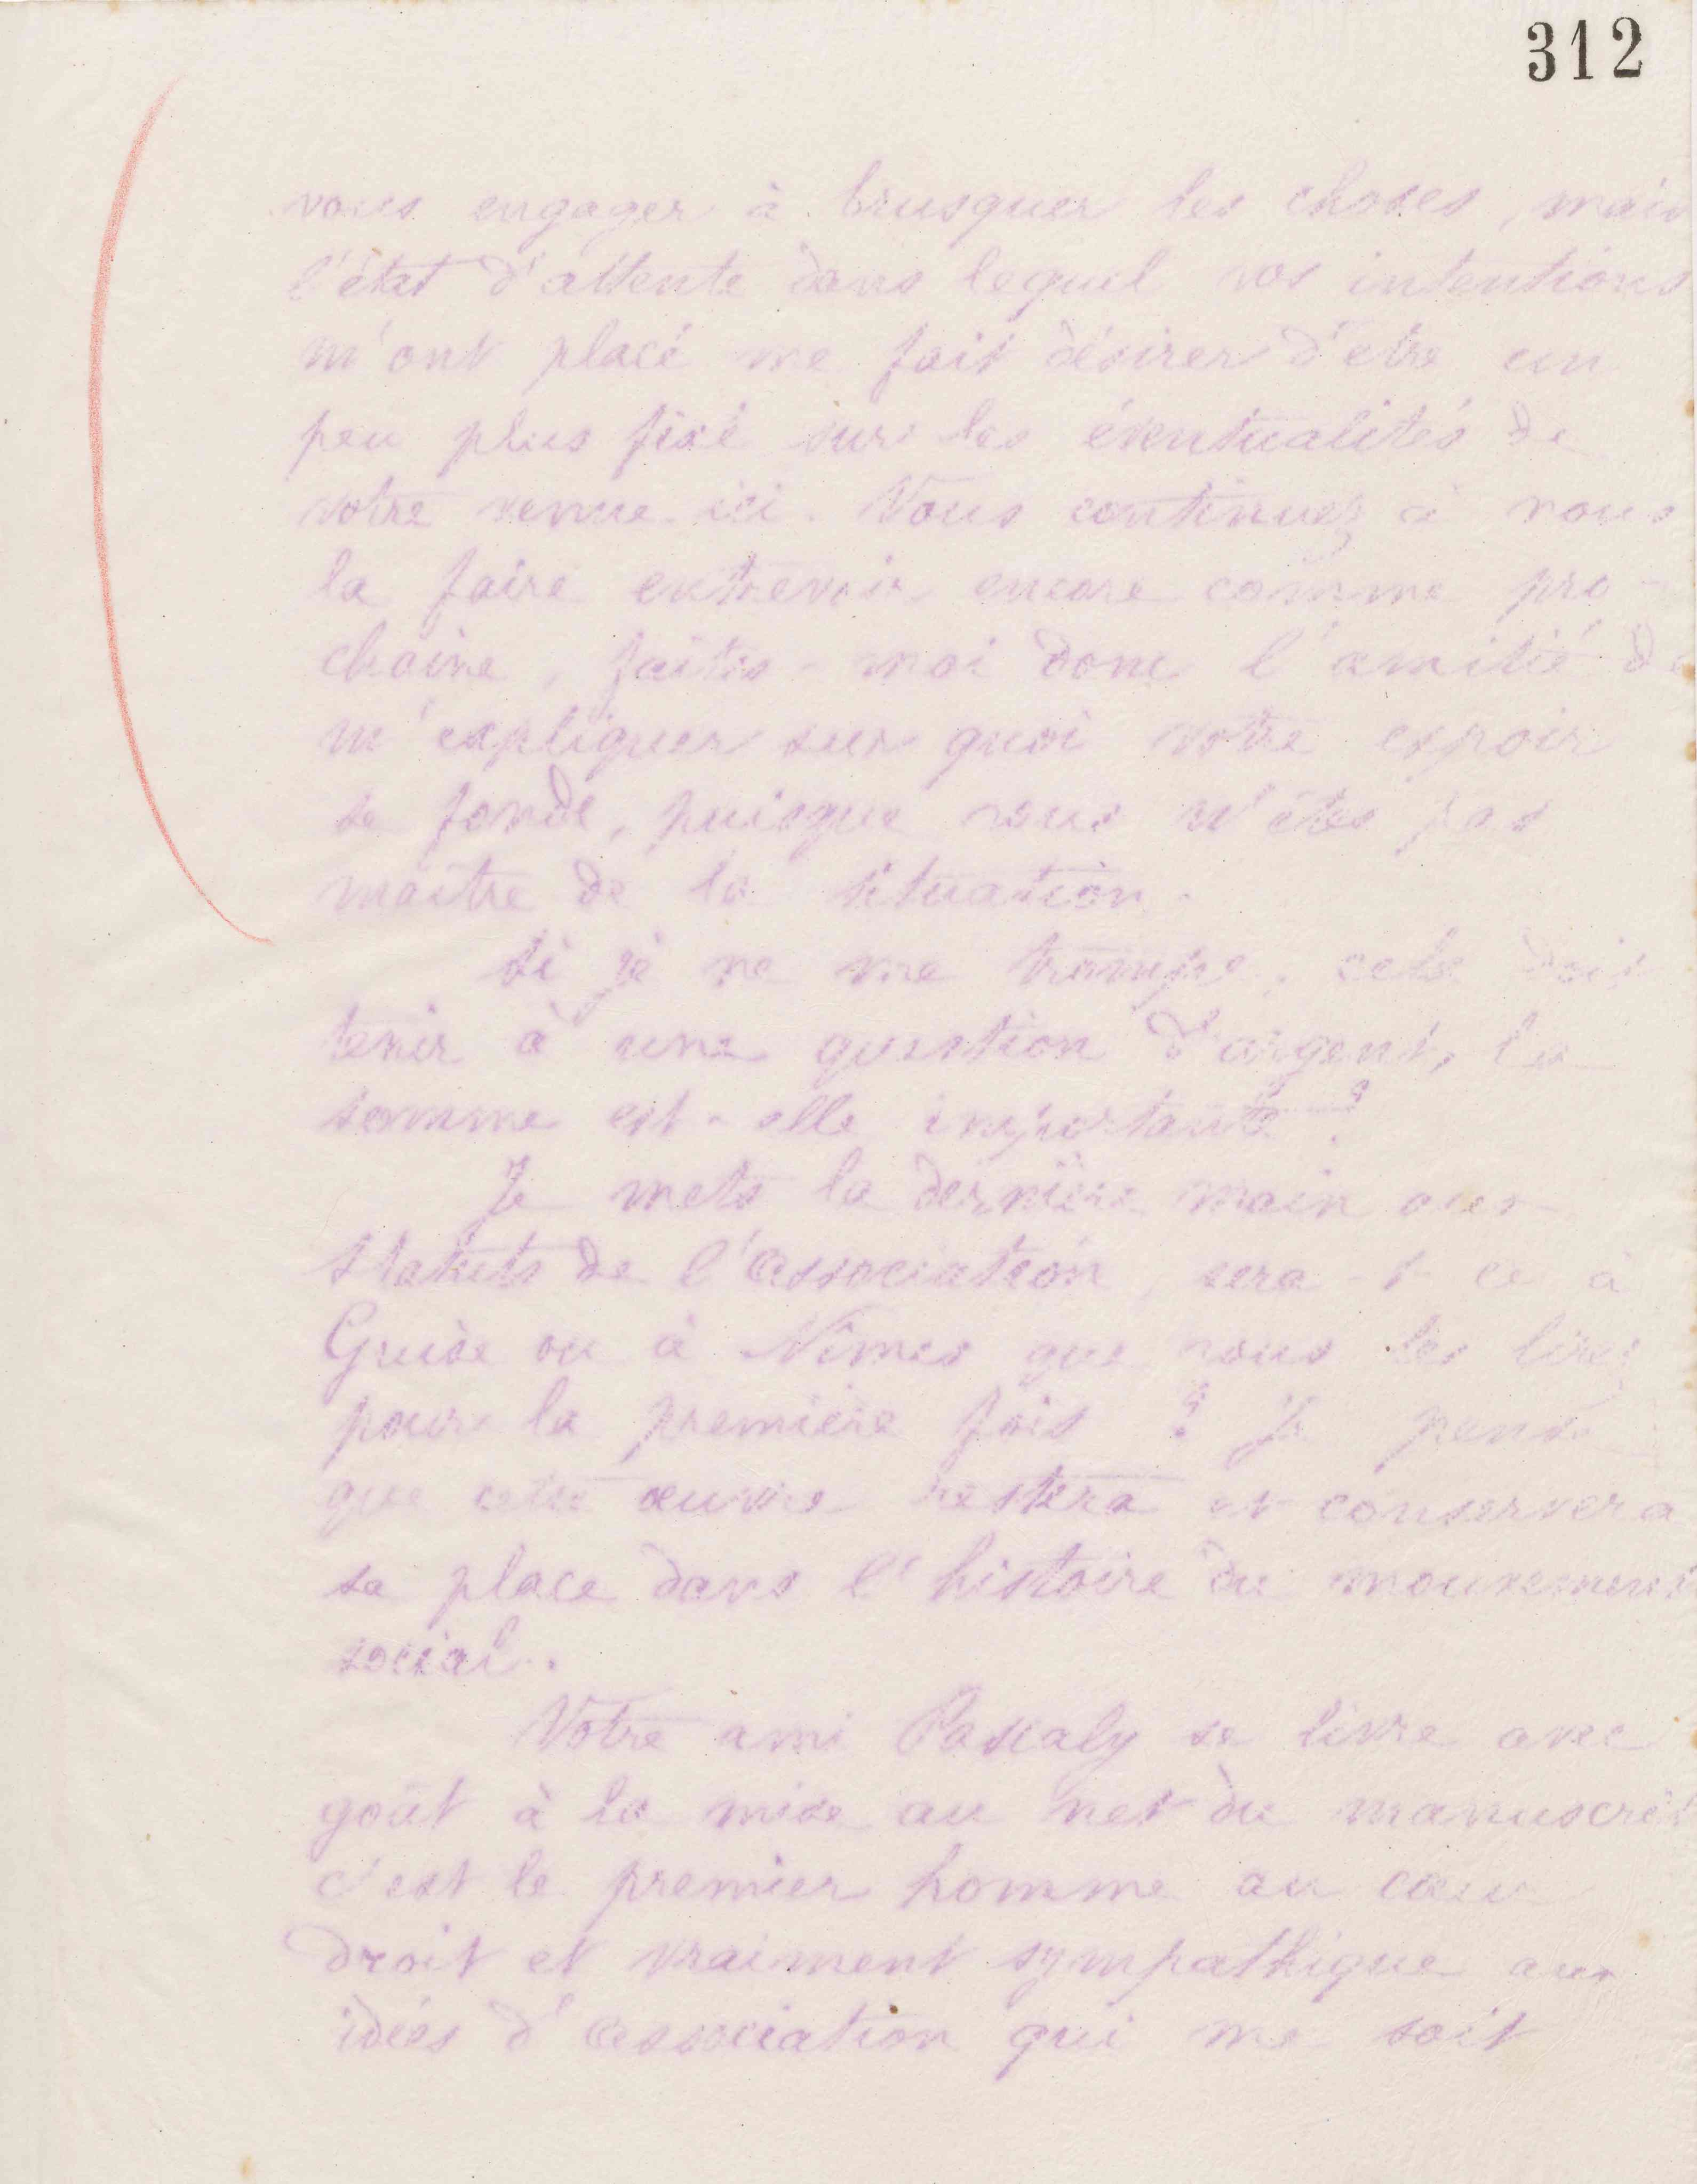 312
vous engager à brusquer les choses, mais
l'état d'attente dans lequel vos intentions
m'ont placé me fait désirer d'être un
peu plus fixé sur les éventualités de
votre venue ici. Vous continuez à nous
la faire entrevoir encore comme pro-
chaine, faites-moi donc l'amitié de
m'expliquer sur quoi votre espoir
se fonde, puisque vous n'êtes pas
maître de la situation.
Si je ne me trompe, cela doit
tenir à une question d'argent, la
somme est-elle importante ?
Je mets la dernière main aux
statuts de l'association, sera-t-ce à
Guise ou à Nîmes que vous les lirez
pour la première fois ? Je pense
que cette œuvre restera et conservera
sa place dans l'histoire du mouvement
social.
Votre ami Pascaly se livre avec
goût à la mise au net du manuscrit
c'est le premier homme au cœur
droit et vraiment sympathique aux
idées d'association qui me soit